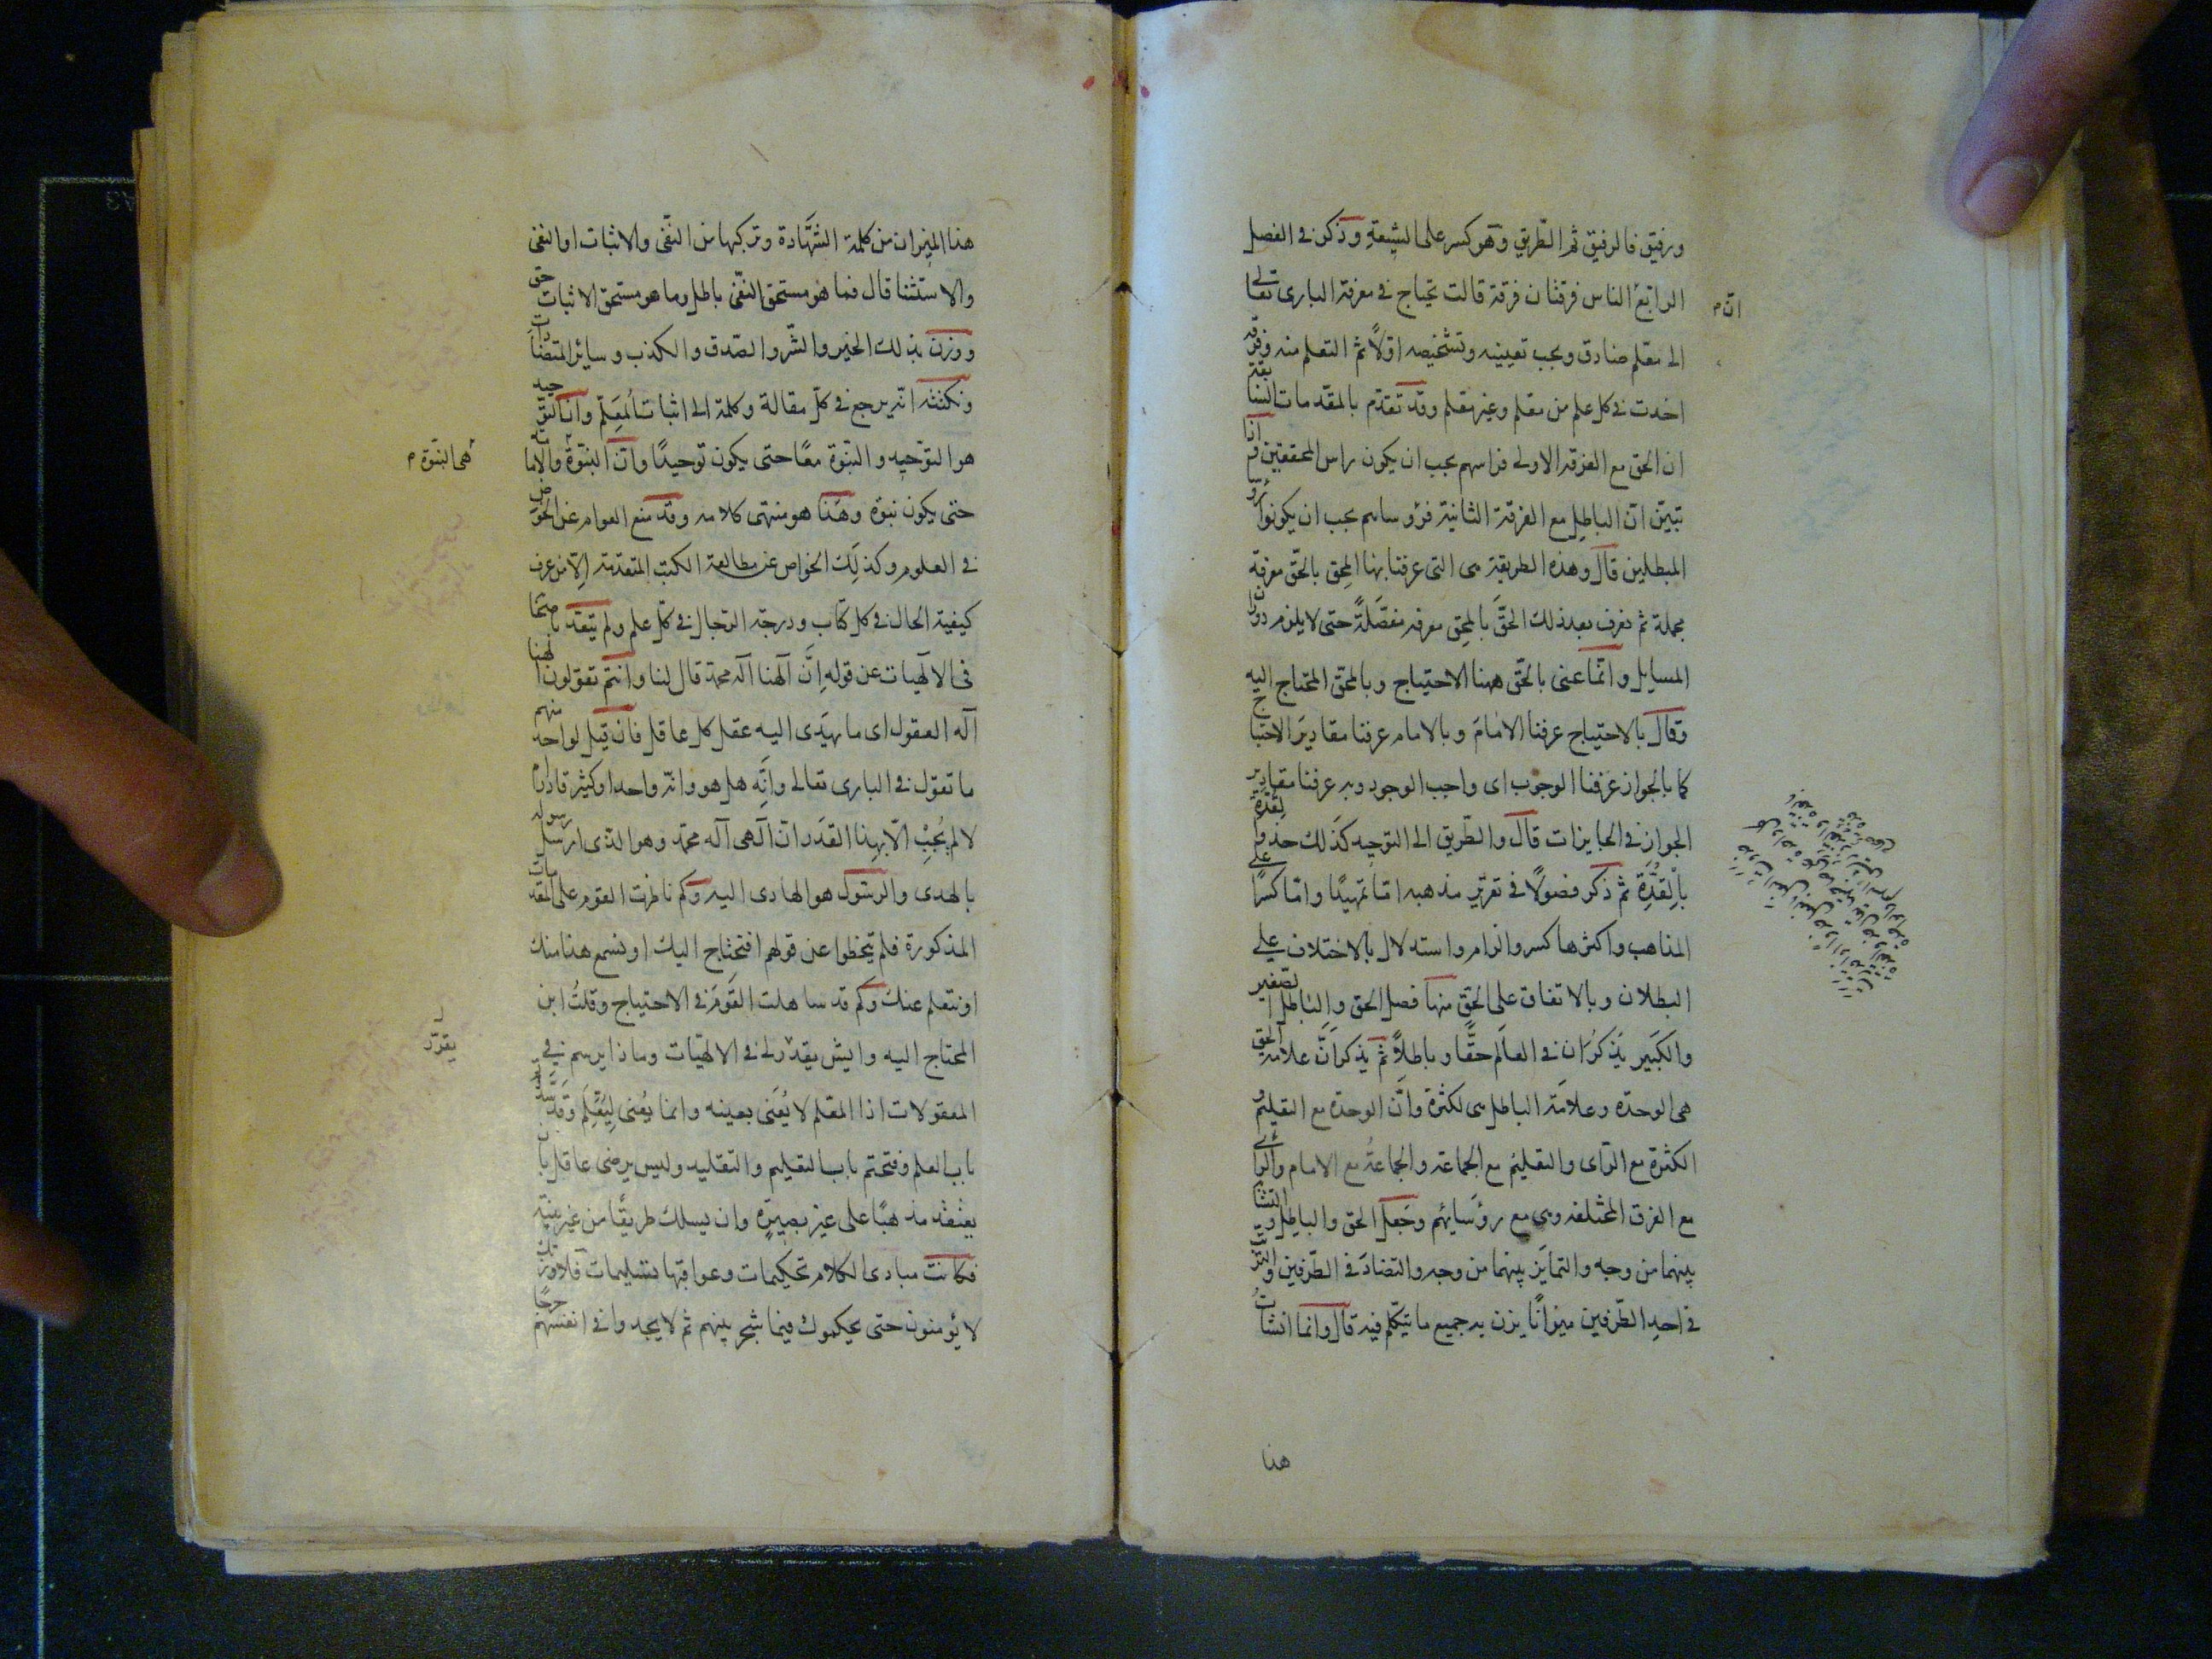 ورفيق فالرفيق ثم الطّريق وهو كسر على الشيعةِ وذكر فى الفصل
الرابع انّ الناس فرقتان فرقة قالت يحتاج فى معرفة البارى تعالى
الى معلم صادق ويجب تعيينه وتشخيصه اوّلاً ثم التعلم منه وفرقة
اخذت فى كل علم من معلم وغير معلم وقد تقدّم بالمقدمات السابقة
ان الحق مع الفرقه الاولى فراسهم يجب ان يكون راس المحققين واذا
تبيّن انّ الباطِل مع الفرقة الثانية فرؤساهم يجب ان يكونوا رؤس
المبطلين قال وهذه الطريقة هى التى عرفنا بها المحِق بالحَق معرفة
مجملة ثم نعرف بعد ذلك الحقَ بالمحِق معرفه مفصّلةً حتى لا يلزم دوران
المسايل وانّما عنى بالحَق ههنا الاحتياج وبالمحق المحتاج اليه
وقال بالاحتياج عرفنا الامَامَ وبالامام عرفنا مقادير الاحتياج
كما بالجواز عرفنا الوجوب اى واجب الوجود وبه عرفنا مقادير
الجواز فى الجايزات قال والطّريق الى التوحيد كذلك حذو القُذّة
بالقُذَّة ثم ذكر فصولاً فى تقرير مذهبه امّا تمهيدًا وامّا كسرًا على
المذاهب واكثرها كسر والزام واستدلال بالاختلاف على
البطلان وبالاتفاق على الحَقِ منها فصل الحق والباطل الصّغير
والكَبير يَذكُر ان فى العالَم حقًّا وباطلاً ثم يذكر انَّ علامة الحق
هى الوحدة وعلامَة الباطل هى لكثرة وانّ الوحدة مع التعليم و
الكثرة مع الرّاى والتعليم مع الجماعة والجماعةُ مع الامام والرّأى
مع الفرق المختلفه وهى مع رؤسَائهم وجعل الحق والباطِل والتشابه
بينهما من وجه والتمايَز بينهما من وجه والتضادَ فى الطّرفين والترتّب
فى احدِ الطّرفين ميزانًا يزن به جميع ما يتكلم فيه قال وانما انشات
هذا
هذا الميزان من كلمة الشهَادة وتركبها من النفى والاثبات او النفى
والاستثنا قال فما هو مستحق النفى باطل وما هو مستحق الاثبات حق
ووزن بذلك الخير والشّر والصّدق والكذب وسائر المتضادات
ونكتته انّه يرجع فى كلّ مقالة وكلمة الى اثبات المعَلم وان التوحيد
هو التوحيد والنبّوة معًا حتى يكون توحيدًا وانّ النبوّة هى النبوّة والامامة
حتى يكون نبوّة وهَذا هو منتهى كلامه وقد منع العوام عن الخوض
فى العلوم وكذلك الخواص عن مطالعة الكتب المتقدمة الّا من عرف
كيفية الحال فى كل كتاب ودرجة الرّجال فى كلّ علم ولم يتعد باصحابه
فى الالَهيات عن قوله انَّ الهنا اله محمّد قال لنا وانتم تقولون الهنا
اله العقول اى ما يهدى اليه عقل كل عاقل فان قيل لواحد منهم
ما تقول فى البارى تعالى وانّه هل هو وانه واحد او كثير قادر ام
لا لم يُجِبْ الّا بهذا القَدر ان الَهى اله محمّد وهو الذى ارسَل رسوله
بالهدى والرسُول هو الهادى اليه وكم ناظرت القوم على المقدمات
المذكورة فلم يتخطوا عن قولهم افتحتاج اليك او نسمع هذا منك
او نتعلم عنك وكم قد ساهلت القَومَ فى الاحتياج وقلتُ اين
المحتاج اليه وايش يقدّر لى فى الالهيّات وماذا يرسم لى فى
يقرّر
المعقولات اذا المعلم لا يُعنَى بعينه وانما يُعنى ليُعلِّمَ وقد سدّدتم
باب العلم وفتحتم باب التعليم والتقليد وليس يرضى عاقل بان
يعتقد مذهبًا على غير بصيرةٍ وان يسلك طريقًا من غير بيّنة
فكانت مبادى الكلام تحكيمات وعواقبها تسليمات فلا وربّك
لا يؤمنون حتى يحكموك فيما شجر بينهم ثم لا يجدوا فى انفسهم حرجًا